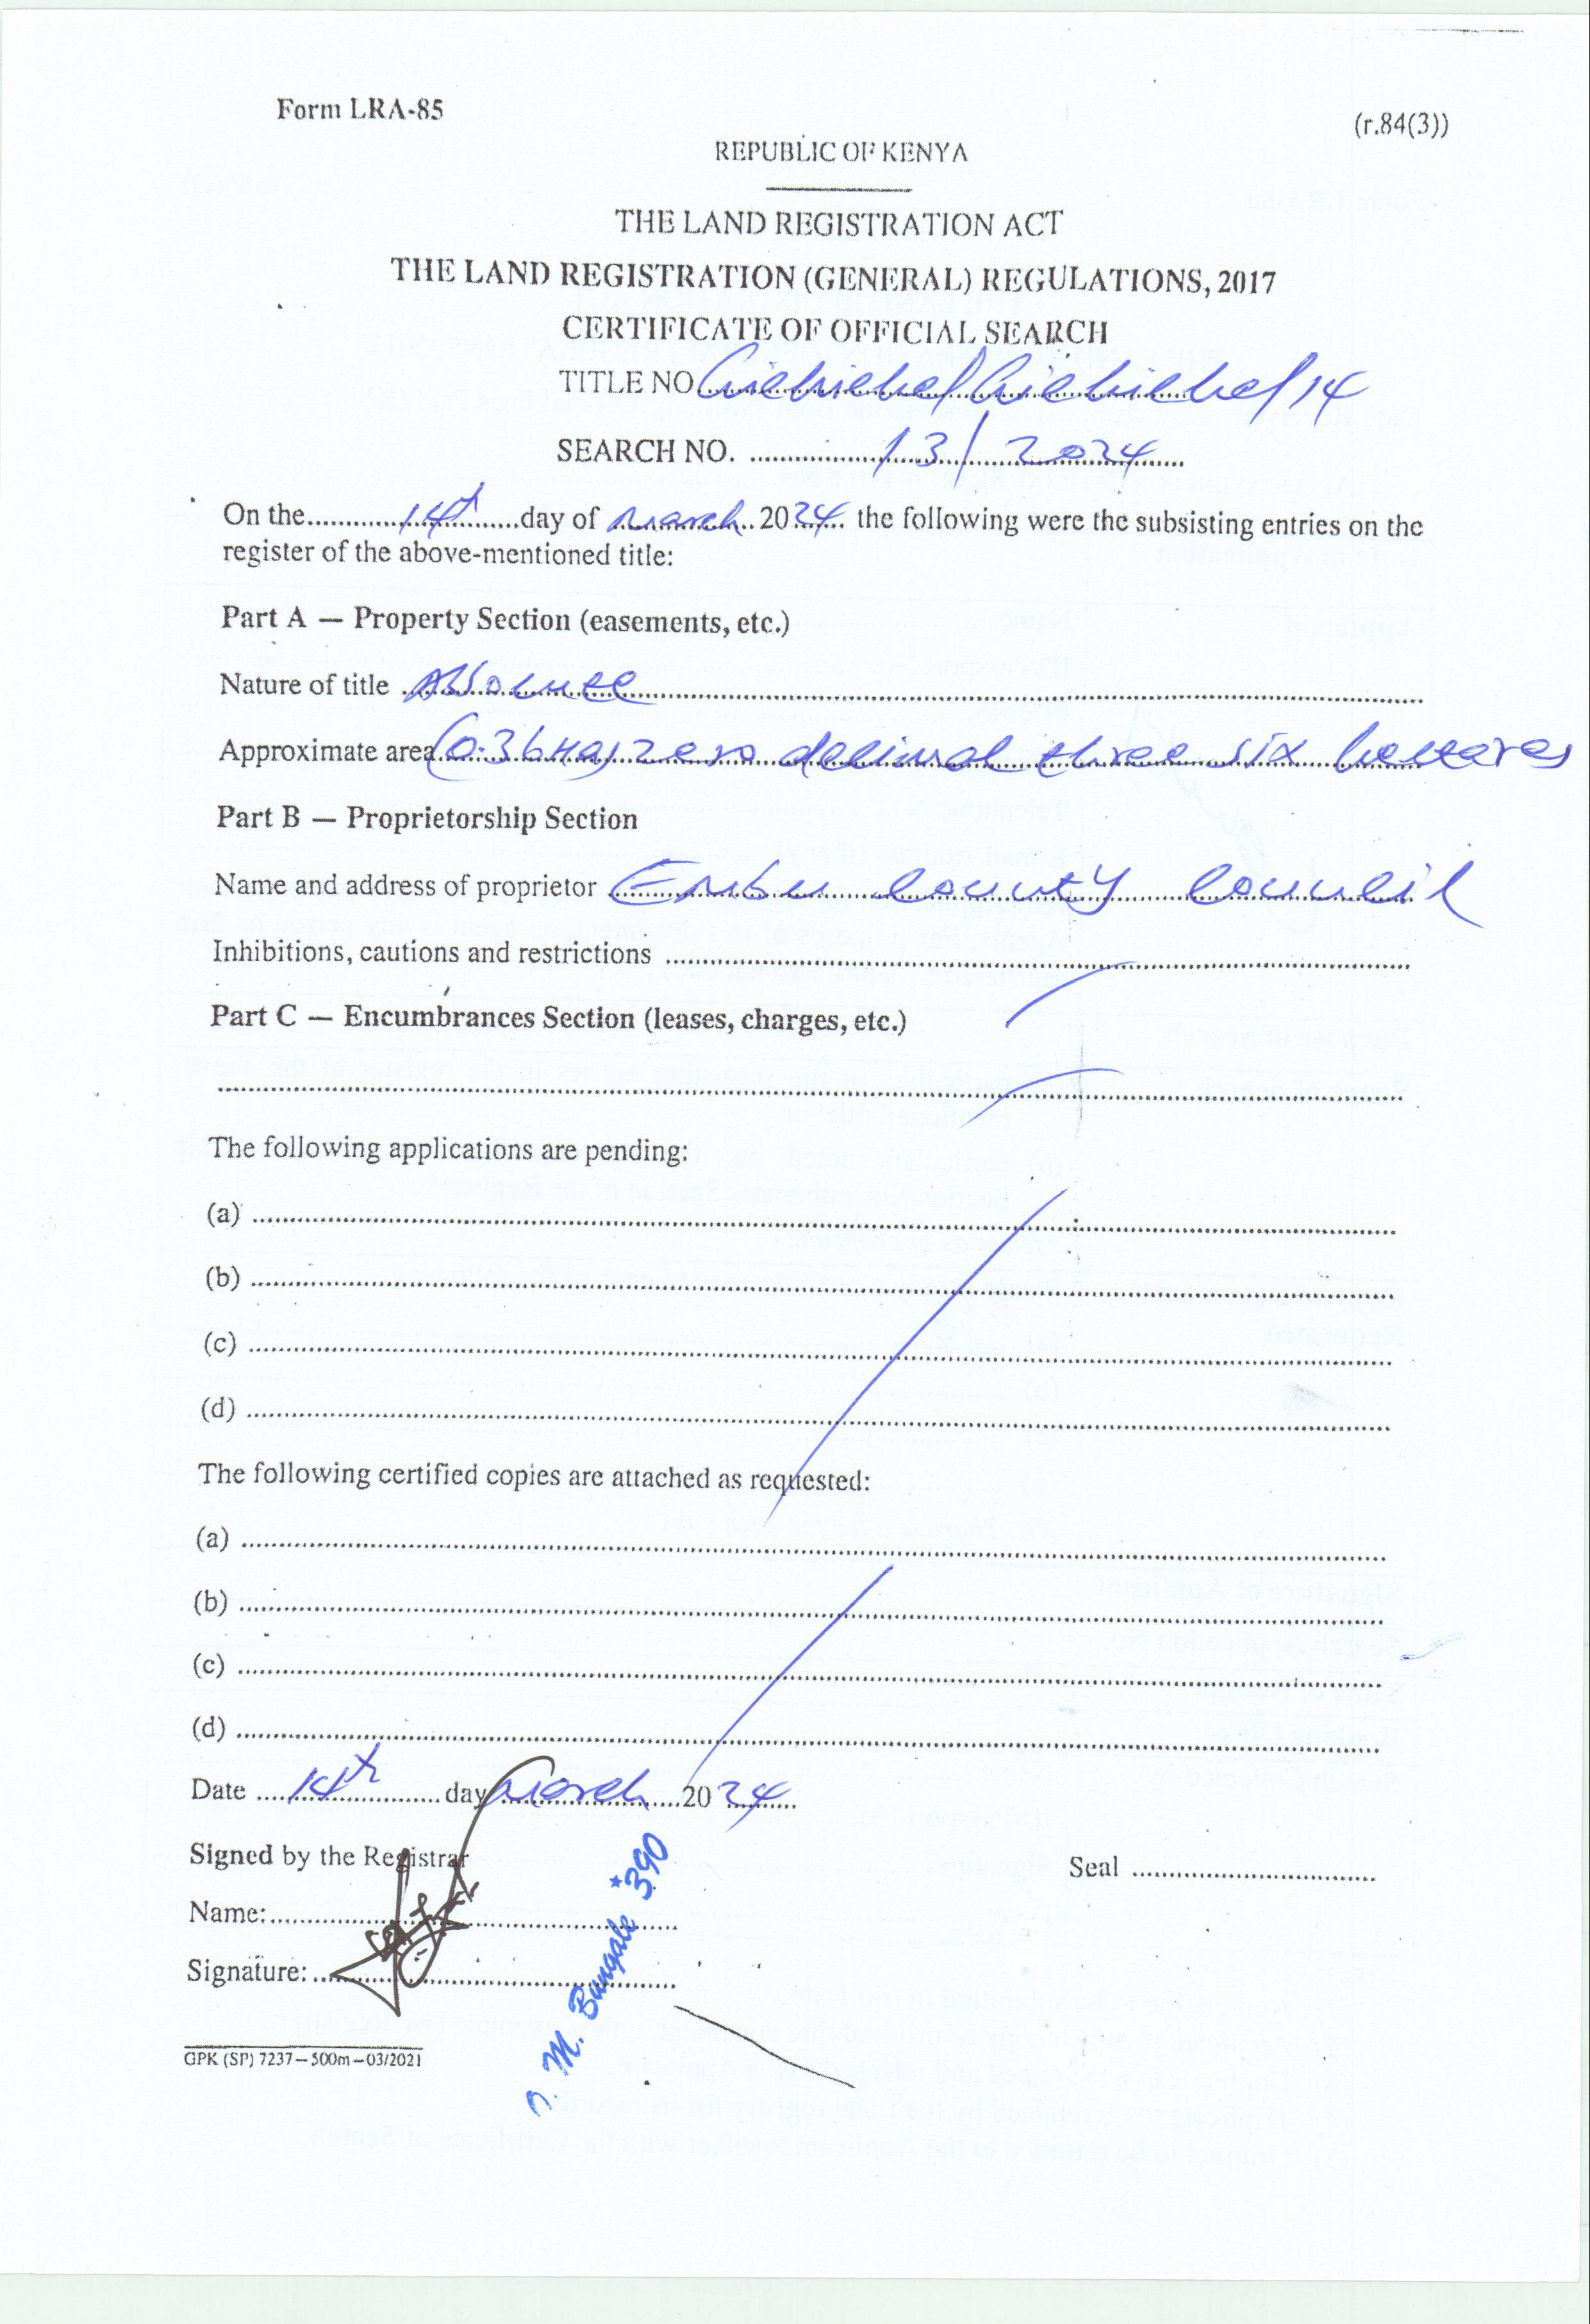 Form LRA-85
(r.84(3))
REPUBLIC OF KENYA
THE LAND REGISTRATION ACT
THE LAND REGISTRATION (GENERAL) REGULATIONS, 2017
CERTIFICATE OF OFFICIAL SEARCH
TITLE NO. /14
SEARCH NO. 13/2024
On the 14th day of March 2024 the following were the subsisting entries on the
register of the above-mentioned title:
Part A — Property Section (easements, etc.)
Nature of title Absolute
Approximate area (0.36Ha) zero decimal three six hectares
Part B — Proprietorship Section
Name and address of proprietor Embu County Council
Inhibitions, cautions and restrictions
Part C — Encumbrances Section (leases, charges, etc.)
The following applications are pending:
(a)
(b)
(c)
(d)
The following certified copies are attached as requested:
(a)
(b)
(c)
(d)
Date 14th day March 2024
Signed by the Registrar
Seal
Name:
Signature:
M. Bungale *390
GPK (SP) 7237—500m—03/2021